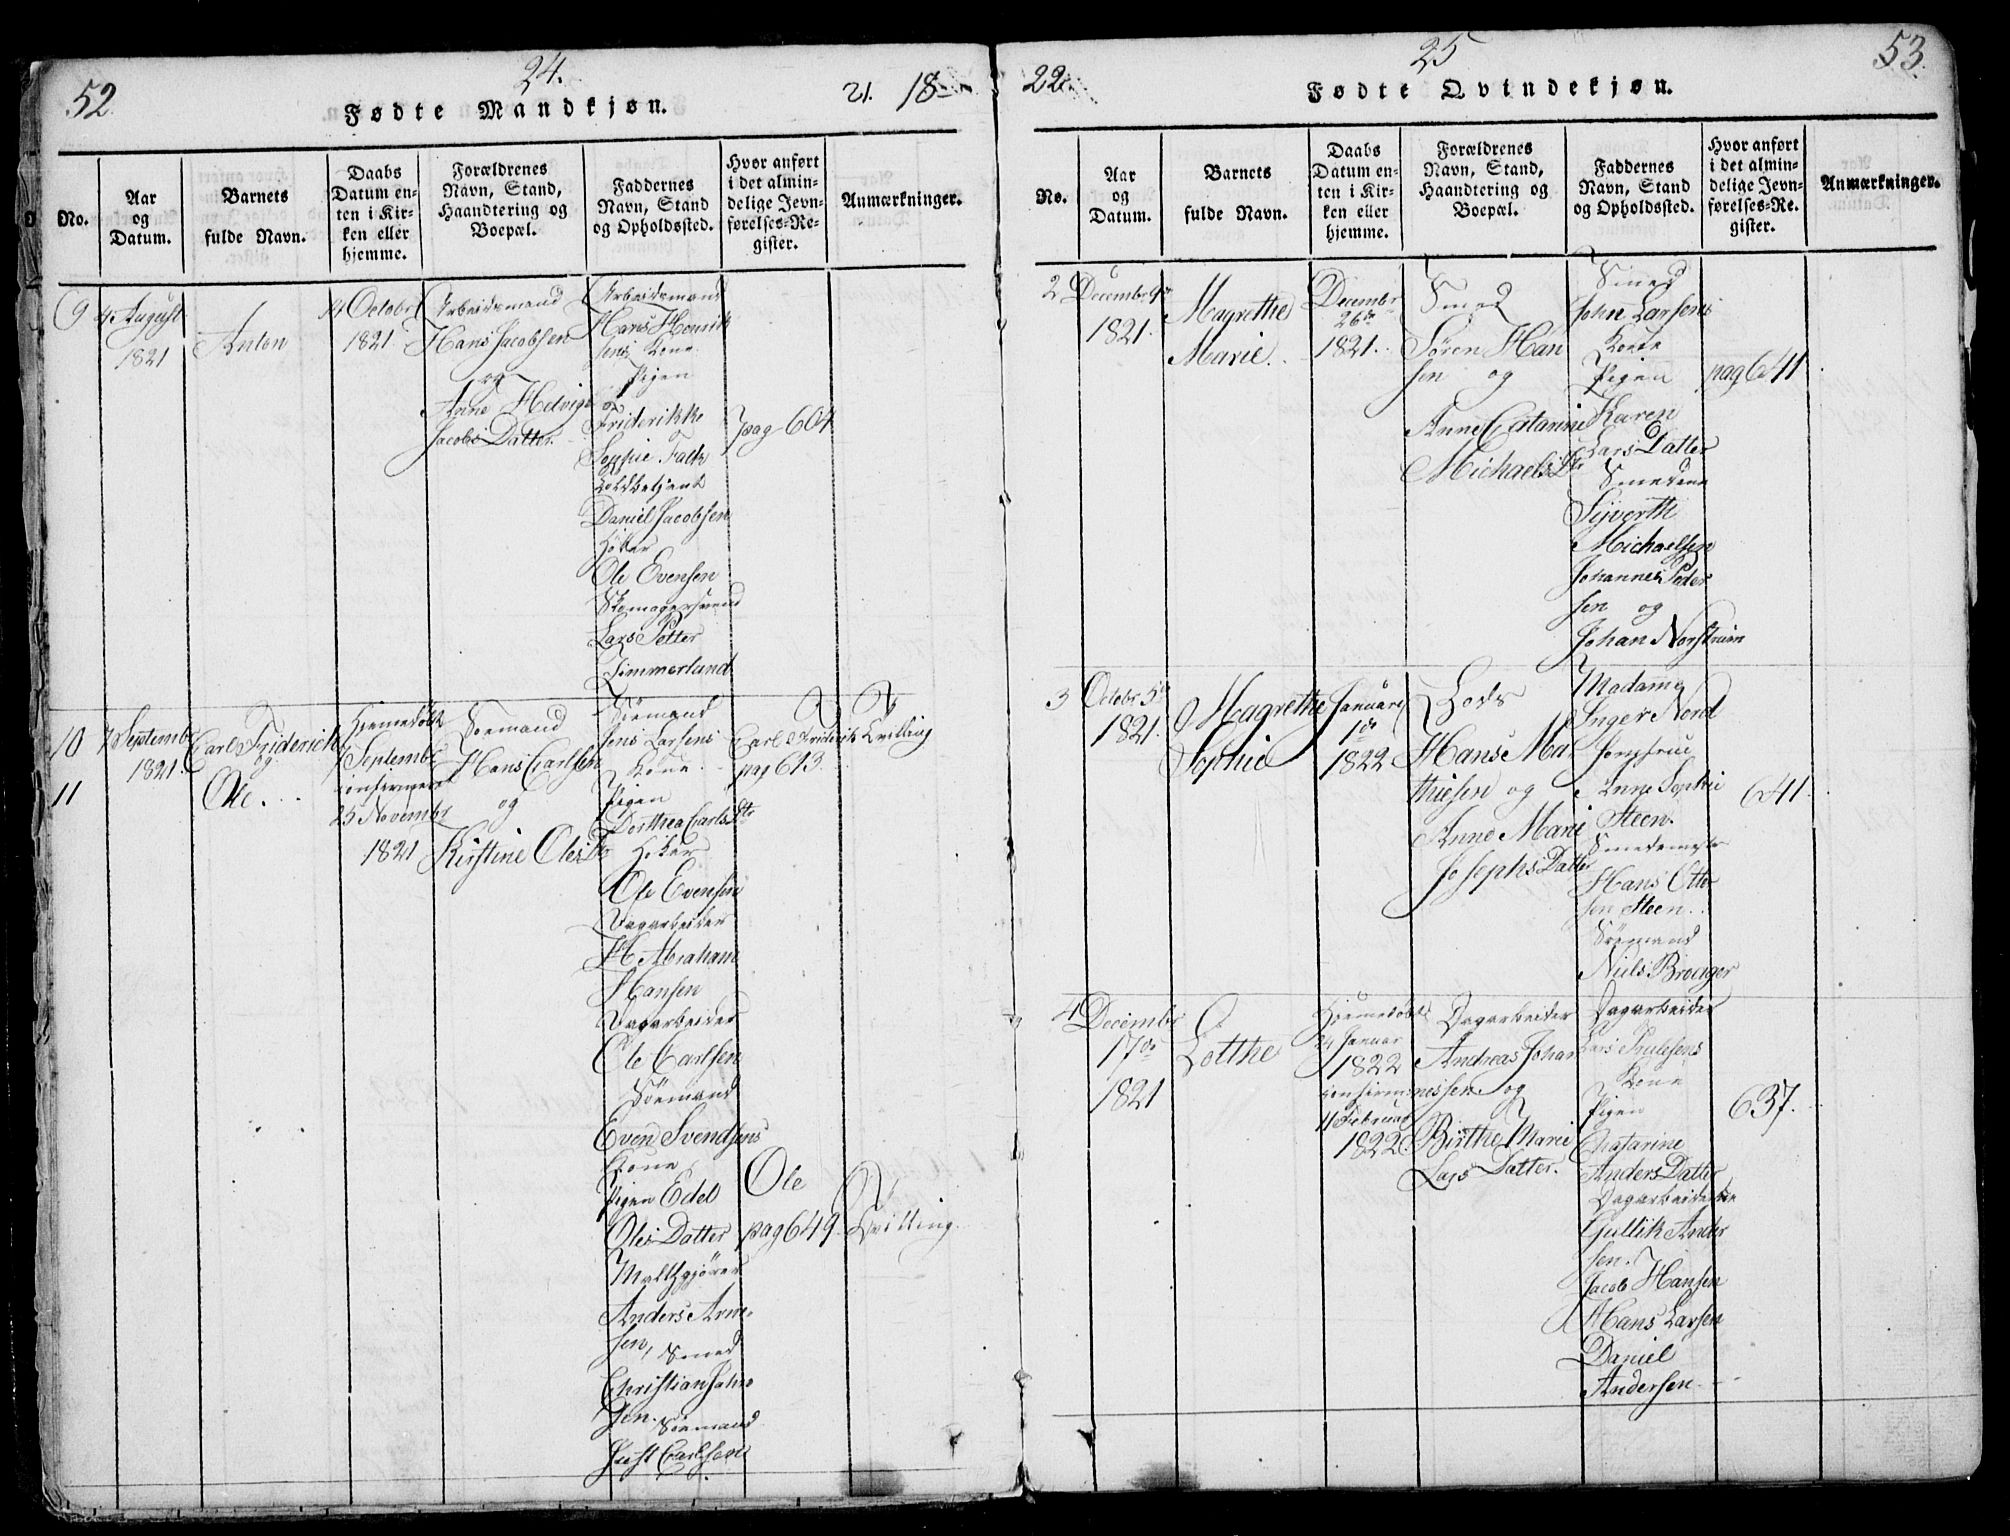 52.
24.
21. 18
Fødte Mandkjøn.
No.
Aar
og
Datum.
Barnets
fulde Navn.
Daabs
Datum en-
ten i Kir-
ken eller
hjemme.
Forældrenes
Navn, Stand,
Haandtering og
Boepæl.
Faddernes
Navn, Stand
og Opholdssted.
Hvor anført
i det almin-
delige Jevn-
førelses-Re-
gister.
Anmærkninger.
9
4 August
1821
Anton
14 Octobr
1821
Arbeidsmand
Hans Jacobsen
og
Anne Hedvig
Jacobs Datter.
Arbeidsmand
Hans Henrik
sens Kone
Pigen
Friderikke
Sophie Falk
Toldbetjent
Daniel Jacobsen
Høker
Ole Evensen
Skomagersvend
Lars Petter
Timmerlund
pag 604
10
11
7 Septembr
1821.
Carl Friderich
og
Ole.
Hjemmedøbt
7 Septembr
confirmert
25 Novembr
1821
Soemand
Hans Carlsen
og
Kirstine Oles Dtr
Söemand
Jens Larsens
Kone
Pigen
Dorthea Carls Dtr
Høker
Ole Evensen
Dagarbeider
H Abraham
Hansen
Dagarbeider
Ole Carlsen
Söemand
Even Svendsens
Kone
Pigen Edel
Oles Datter
Maltgjörer
Anders Arne-
sen, Smed
Christian Johan
sen. Söemand
Just Carlsen
Carl Friderik
pag 613.
Tvilling
Ole
pag 649
Tvilling.
22.
25
53.
Fødte Qvindekjøn.
No.
Aar
og
Datum.
Barnets
fulde Navn.
Daabs
Datum en-
ten i Kir-
ken eller
hjemme.
Forældrenes
Navn, Stand,
Haandtering og
Boepæl.
Faddernes
Navn, Stand
og Opholdssted.
Hvor anført
i det almin-
delige Jevn-
førelses-Re-
gister.
Anmærkninger.
2
Decembr 9de
1821.
Magrethe
Marie.
Decembr
26de
1821.
Smed
Søren Han
sen og
Anne Catarine
Michaels Dtr
Smed
John Larsens
Kone
Pigen
Karen
Lars Datter
Smedene
Syverth
Michaelsen
Johannes Peder
sen og
Johan Norstrøm
pag 641
3
Octobr 5te
1821.
Magrethe
Sophie
Januar
1de
1822
Lods
Hans Ma
thiesen og
Anne Marie
Josephs Datter
Madame
Inger Nord
Jomfrue
Anne Sophie
Steen.
Smedemester
Hans Otter
sen Steen.
Söemand
Niels Broeger
641.
4
Decembr
17de
1821
Lotthe
Hjemmedöbt
Januar
1822
confirm
11 Februar
1822.
Dagarbeider
Andreas Johan
nessen og
Birthe Marie
Lars Datter.
Dagarbeider
Lars Truelsens
Kone
Pigen
Chatarine
Anders Datter
Dagarbeiderne
Gullik Ander
sen.
Jacob Hansen
Hans Larsen
Daniel
Andersen.
637.